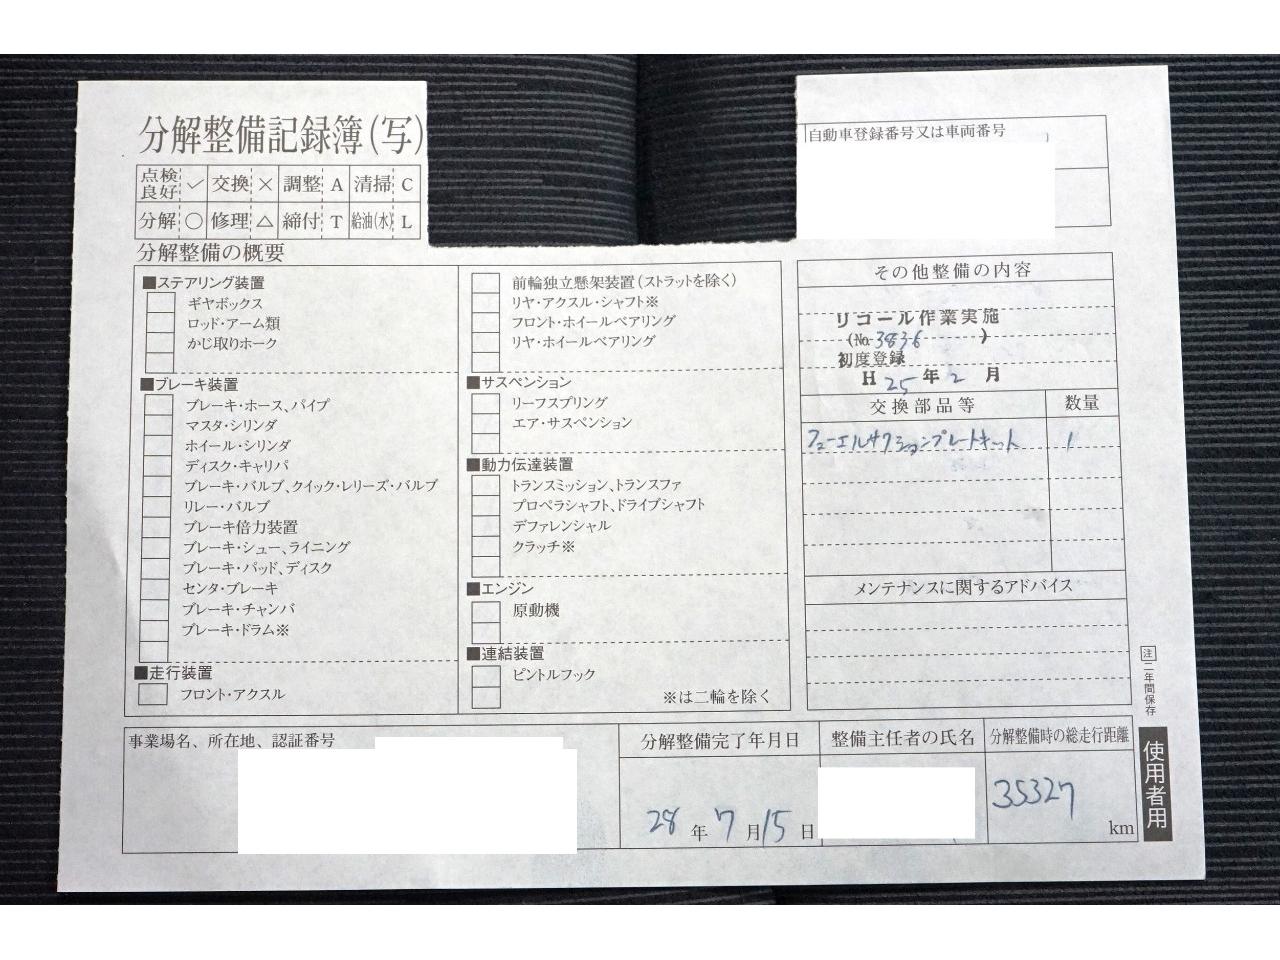 分解整備記録簿(写)
点検良好 ✓ 交換 × 調整 A 清掃 C
分解 ○ 修理 △ 締付 T 給油(水) L
自動車登録番号又は車両番号
分解整備の概要
■ステアリング装置
ギヤボックス
ロッド・アーム類
かじ取りホーク
■ブレーキ装置
ブレーキ・ホース、パイプ
マスタ・シリンダ
ホイール・シリンダ
ディスク・キャリパ
ブレーキ・バルブ、クイック・レリーズ・バルブ
リレー・バルブ
ブレーキ倍力装置
ブレーキ・シュー、ライニング
ブレーキ・パッド、ディスク
センタ・ブレーキ
ブレーキ・チャンバ
ブレーキ・ドラム※
■走行装置
フロント・アクスル
前輪独立懸架装置(ストラットを除く)
リヤ・アクスル・シャフト※
フロント・ホイールベアリング
リヤ・ホイールベアリング
■サスペンション
リーフスプリング
エア・サスペンション
■動力伝達装置
トランスミッション、トランスファ
プロペラシャフト、ドライブシャフト
デファレンシャル
クラッチ※
■エンジン
原動機
■連結装置
ピントルフック
※は二輪を除く
その他整備の内容
リコール作業実施
(No.3836)
初度登録
H 25年2月
交換部品等 数量
フューエルサクションプレートキット 1
メンテナンスに関するアドバイス
注 二年間保存
使用者用
事業場名、所在地、認証番号
分解整備完了年月日
28年7月15日
整備主任者の氏名
分解整備時の総走行距離
35327 km